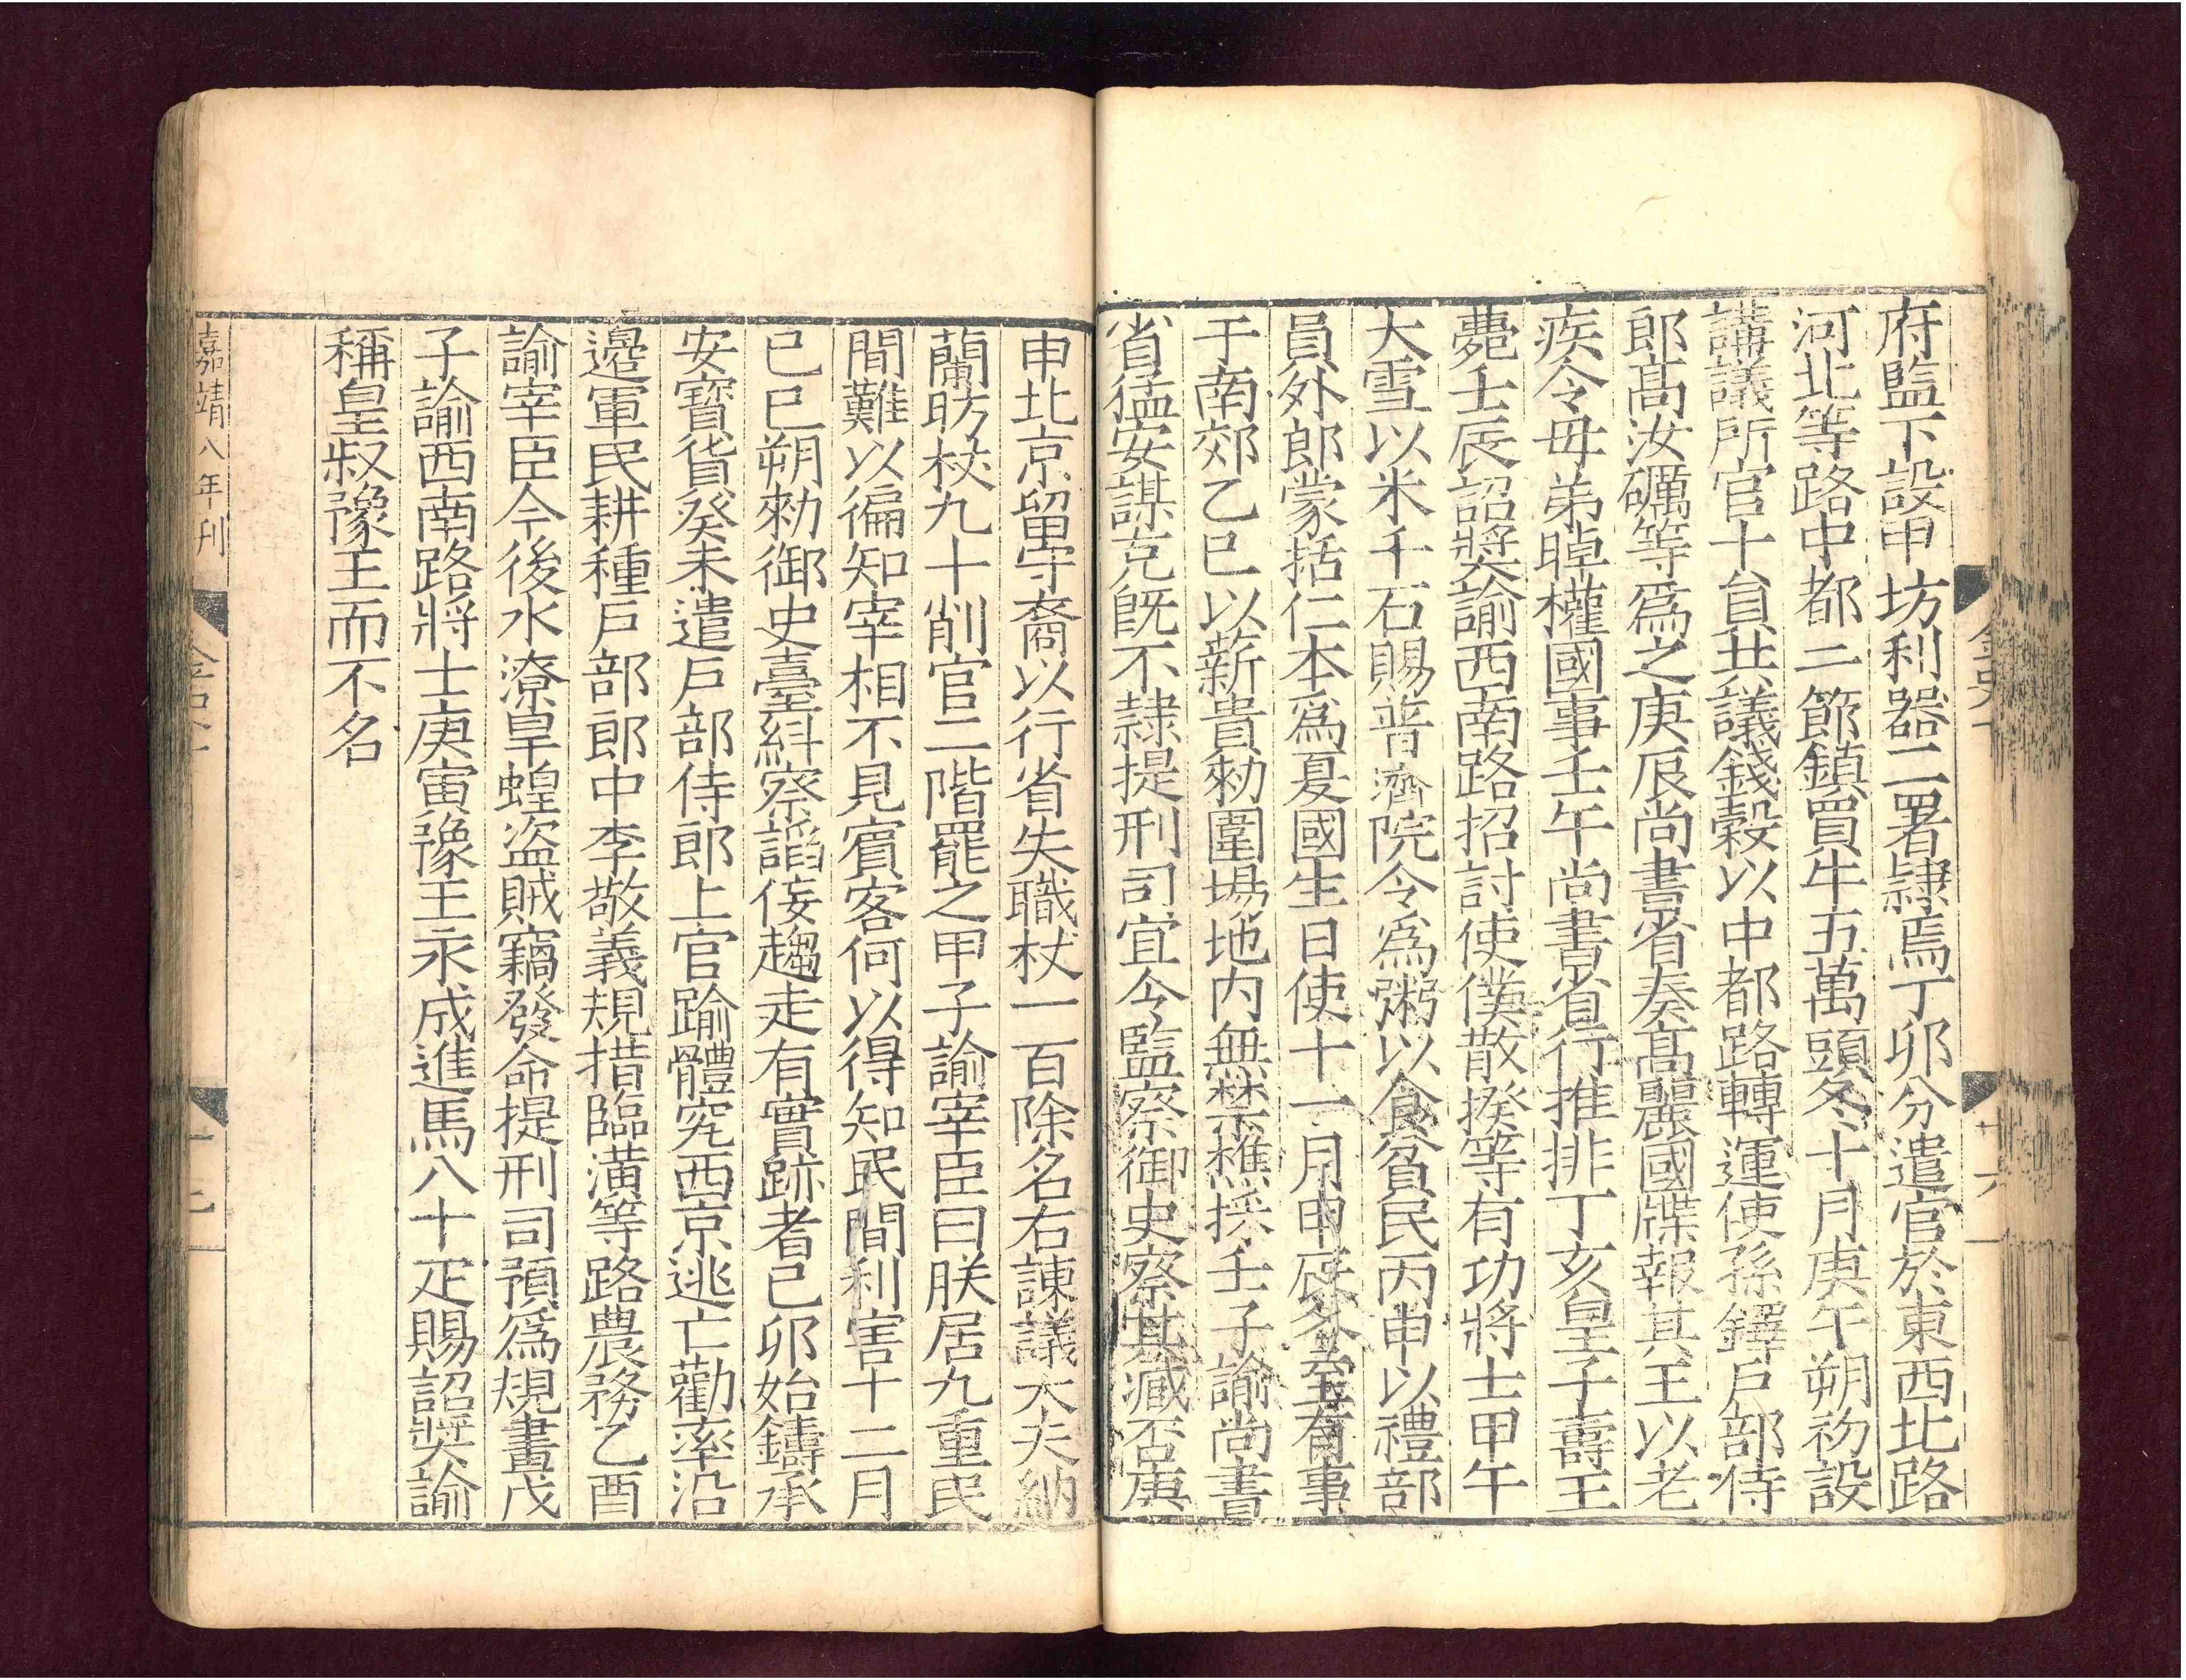 府監下設甲坊利器二署隸焉丁卯分遣官於東西北路
河北等路中都二節鎮買牛五萬頭冬十月庚午朔初設
講議所官十員共議錢穀以中都路轉運使孫鐸戶部侍
郎高汝礪等爲之庚辰尚書省奏高麗國牒報其王以老
疾令母弟晫權國事壬午尚書省行推排丁亥皇子壽王
薨壬辰詔奬諭西南路招討使僕散揆等有功將士甲午
大雪以米千石賜普濟院令爲粥以食貧民丙申以禮部
員外郎蒙括仁本爲夏國生日使十一月甲辰冬至有事
于南郊乙巳以薪貴勑圍場地内無禁樵採壬子諭尚書
省猛安謀克旣不隸提刑司宜令監察御史察其臧否庚
申北京留守裔以行省失職杖一百除名右諫議大夫納
蘭昉杖九十削官二階罷之甲子諭宰臣曰朕居九重民
間難以徧知宰相不見賓客何以得知民間利害十二月
己巳朔勑御史臺糾察謟佞趨走有實跡者己卯始鑄承
安寳貨癸未遣戶部侍郎上官踰體究西京逃亡勸率沿
邉軍民耕種戶部郎中李敬義規措臨潢等路農務乙酉
諭宰臣今後水潦旱蝗盗賊竊發命提刑司預爲規畫戊
子諭西南路將士庚寅豫王永成進馬八十疋賜詔奬諭
稱皇叔豫王而不名
嘉靖八年刊